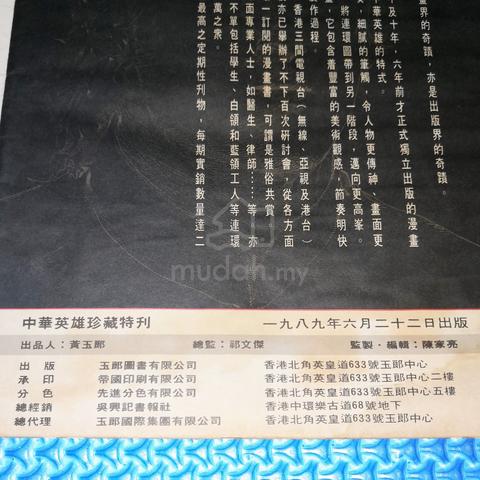 畫界的奇蹟,亦是出版界的奇蹟。
及十年,六年前才正式獨立出版的漫畫
華英雄的特式。
細膩的筆觸,令人物更傳神、畫面更
將連環圖帶到另一階段,邁向更高峯。
它包含着豐富的美術觀感,節奏明快
作過程。
香港三間電視台(無線、亞視及港台)
亦已舉辦了不下百次研討會,從各方面
一訂閱的漫畫書,可謂是雅俗共賞
面專業人士,如醫生、律師……等,亦
不單包括學生、白領和藍領工人等連環
萬之衆。
最高之定期性刊物,每期實銷數量達二
mudah.my
中華英雄珍藏特刊 一九八九年六月二十二日出版
出品人:黃玉郎 總監:祁文傑 監製・編輯:陳家亮
出版 玉郎圖書有限公司 香港北角英皇道633號玉郎中心
承印 帝國印刷有限公司 香港北角英皇道633號玉郎中心二樓
分色 先進分色有限公司 香港北角英皇道633號玉郎中心五樓
總經銷 吳興記書報社 香港中環樂古道68號地下
總代理 玉郎國際集團有限公司 香港北角英皇道633號玉郎中心